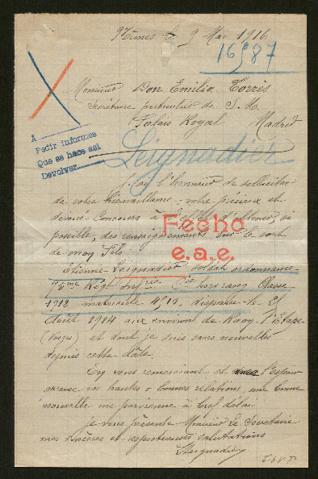 Nîmes le 9 Mai 1916
16987
Monsieur Don Emilio Torrès
Secrétaire particulier de S. M.
Palais Royal Madrid
A
Pedir informes
Que se hace así
Devolver
Seignadier
J'ai l'honneur de solliciter
de votre bienveillance votre précieux et
dévoué concours à l'effet d'obtenir si
possible, des renseignements sur le sort
de mon fils
Fecho
e.a.e.
Etienne Seignadier soldat ordonnance
75me Régt Infrie Cie hors rang Classe
1912 matricule disparu le 25
Août 1914 aux environs de Raon l'Etape
(Vosges) et dont je suis sans nouvelles
depuis cette date.
En vous remerciant et l'espoir
hautes & bonnes relations, une bonne
nouvelle me parvienne à bref délai.
Je vous présente Monsieur le Secrétaire
mes sincères et respectueuses salutations
Seignadier